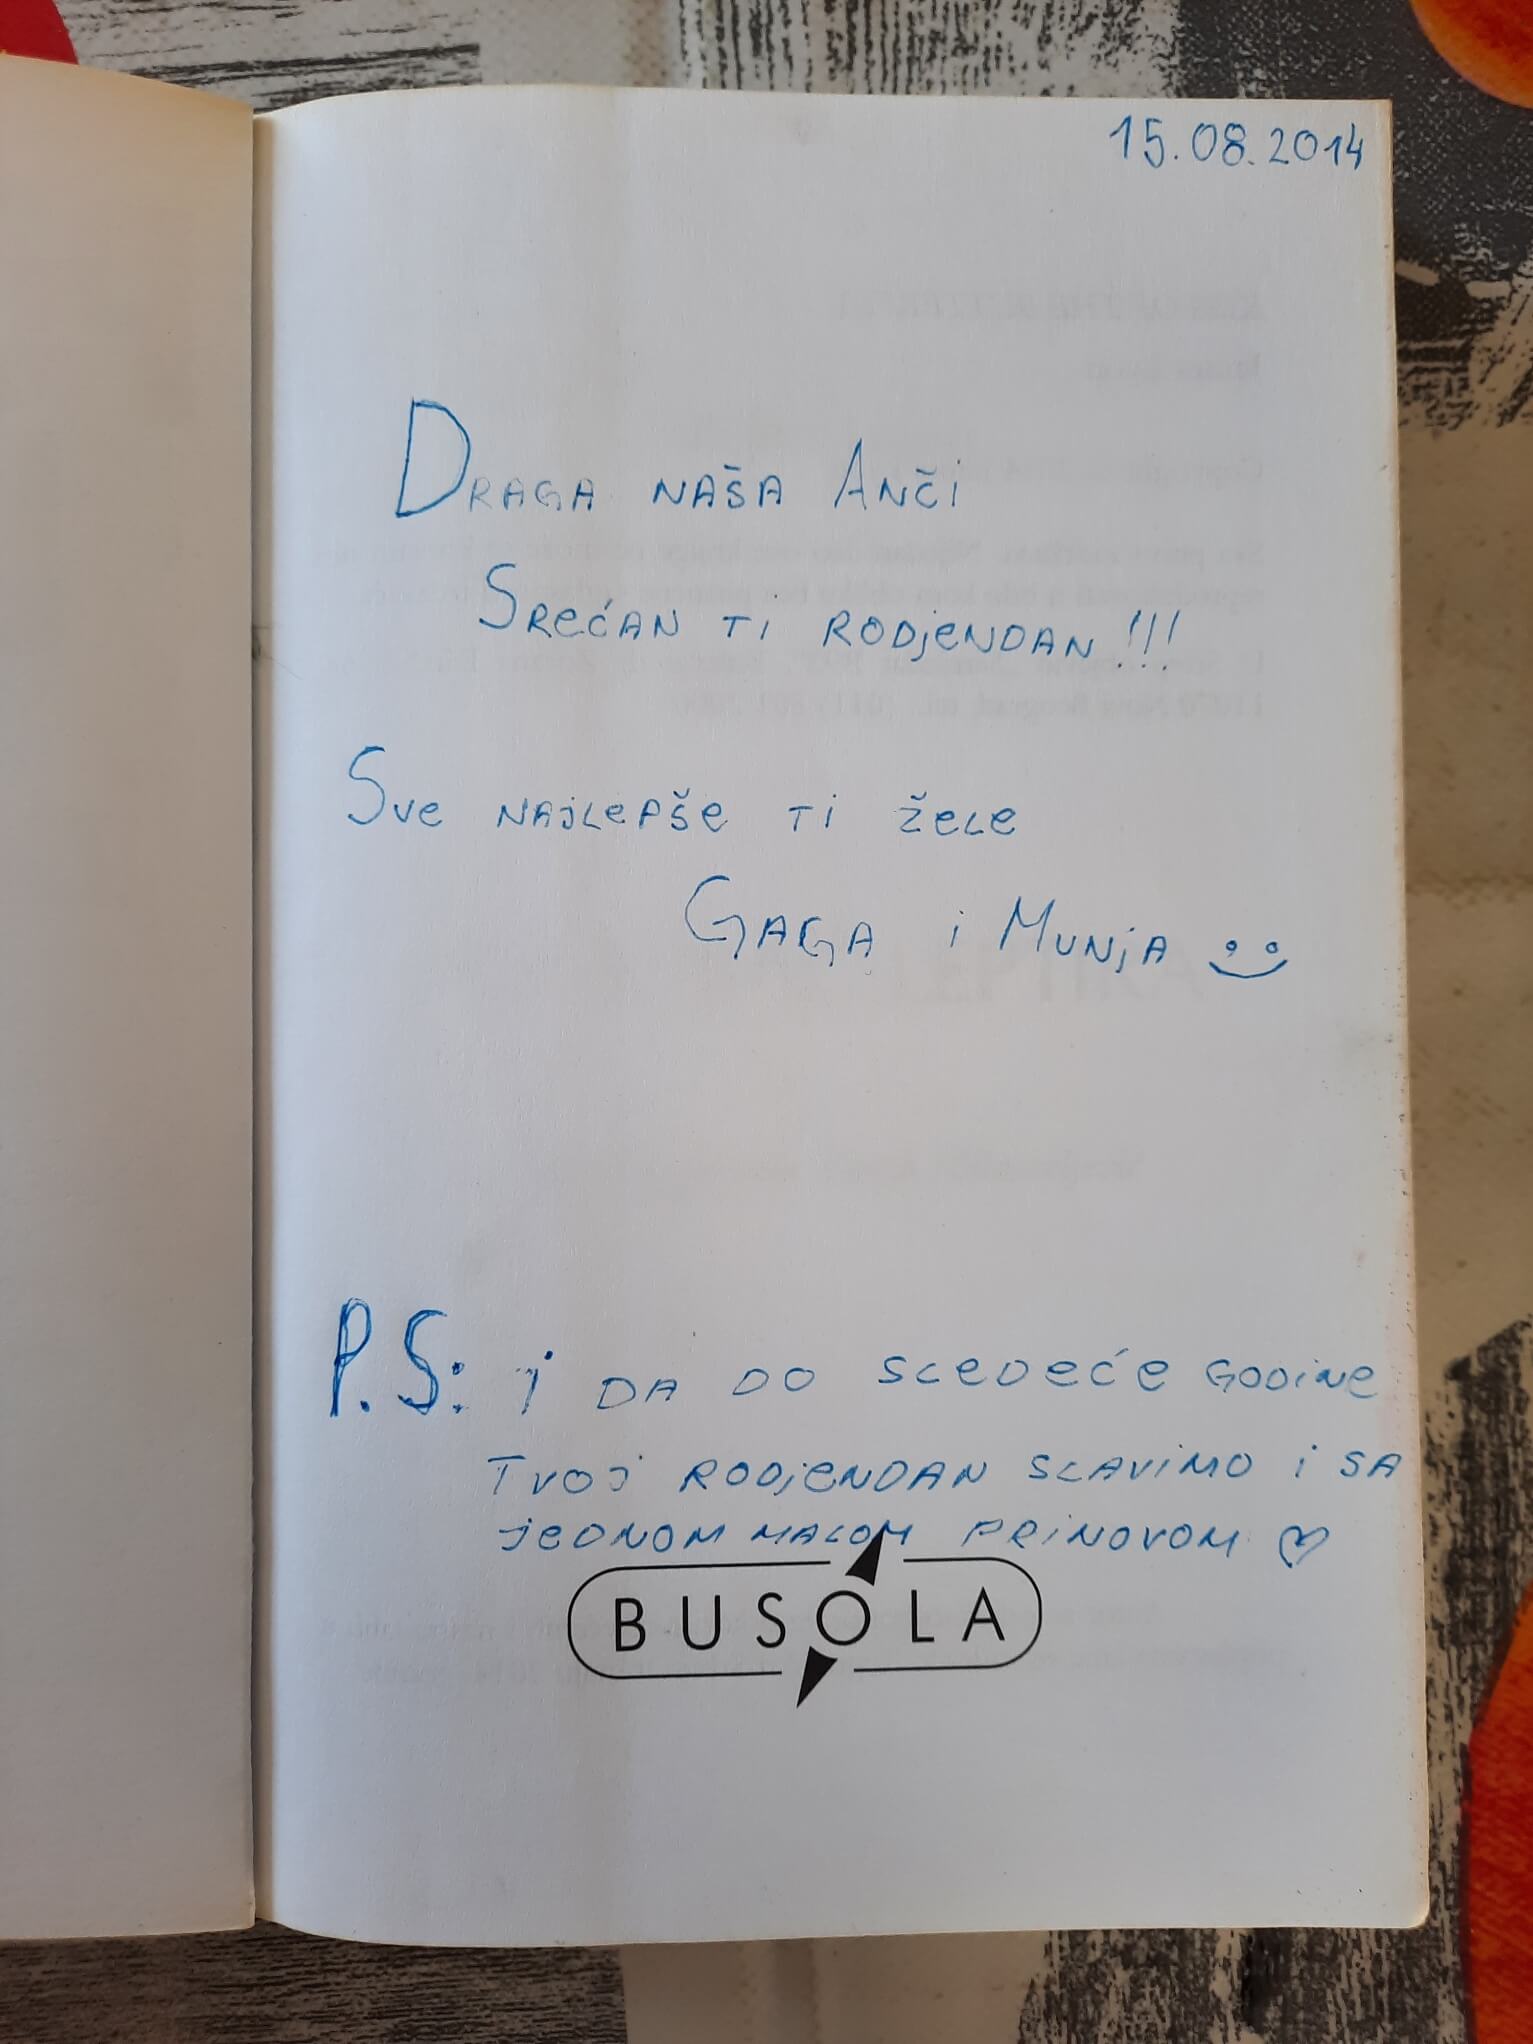 15.08.2014
DRAGA NAŠA ANČI
SREĆAN TI RODJENDAN!!!
SVE NAJLEPŠE TI ŽELE
GAGA i MUNJA
P.S: I DA DO SLEDEĆE GODINE
TVOJ RODJENDAN SLAVIMO I SA
JEDNOM MALOM PRINOVOM
BUSOLA